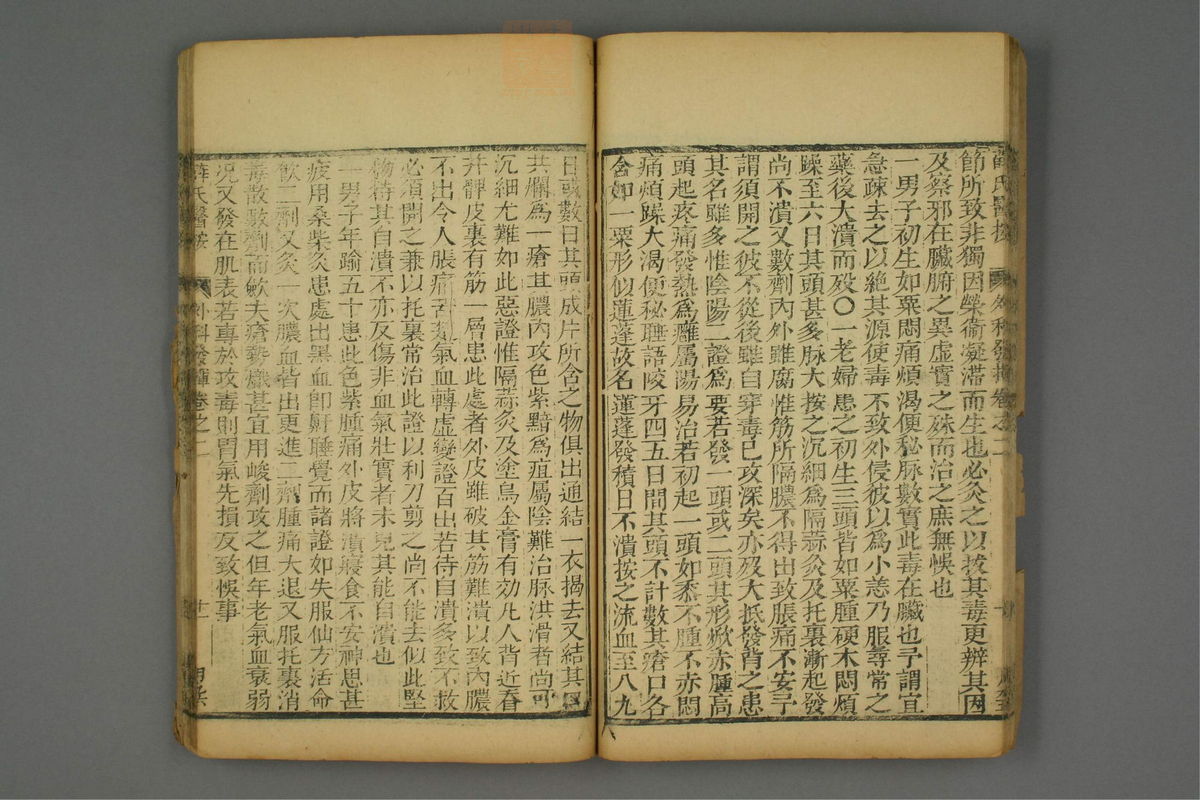 薛氏醫按 外科發揮卷之二
節所致非獨因榮衛凝滯而生也必灸之以拔其毒更辨其因
及察邪在臟腑之異虛實之殊而治之庶無悞也
一男子初生如粟悶痛煩渴便秘脉數實此毒在臟也予謂宜
急疎去之以絶其源使毒不致外侵彼以為小恙乃服尋常之
藥後大潰而殁○一老婦患之初生三頭皆如粟腫硬木悶煩
躁至六日其頭甚多脉大按之沉細為隔蒜灸及托裏漸起發
尚不潰又數劑內外雖腐惟筋所隔膿不得出致脹痛不安予
謂須開之彼不從後雖自穿毒已攻深矣亦殁大抵發背之患
其名雖多惟陰陽二證為要若發一頭或二頭其形焮赤腫高
頭起疼痛發熱為癰屬陽易治若初起一頭如黍不腫不赤悶
痛煩躁大渴便秘睡語咬牙四五日間其頭不計數其瘡口各
含如一粟形似蓮蓬故名蓮蓬發積日不潰按之流血至八九
日或數日其頭成片所含之物俱出通結一衣揭去又結其口
共爛為一瘡其膿內攻色紫黯為疽屬陰難治脉洪滑者尚可
沉細尤難如此惡證惟隔蒜灸及塗烏金膏有効凡人背近脊
并髀皮裏有筋一層患此處者外皮雖破其筋難潰以致內膿
不出令人脹痛苦楚氣血轉虛變證百出若待自潰多致不救
必須開之兼以托裏常治此證以利刀剪之尚不能去似此堅
物待其自潰不亦反傷非血氣壯實者未見其能自潰也
一男子年踰五十患此色紫腫痛外皮將潰寢食不安神思甚
疲用桑柴灸患處出黑血即鼾睡覺而諸證如失服仙方活命
飲二劑又灸一次膿血皆出更進二劑腫痛大退又服托裏消
毒散數劑而歛夫瘡勢熾甚宜用峻劑攻之但年老氣血衰弱
况又發在肌表若專於攻毒則胃氣先損反致悞事
薛氏醫按 外科發揮卷之二 十一